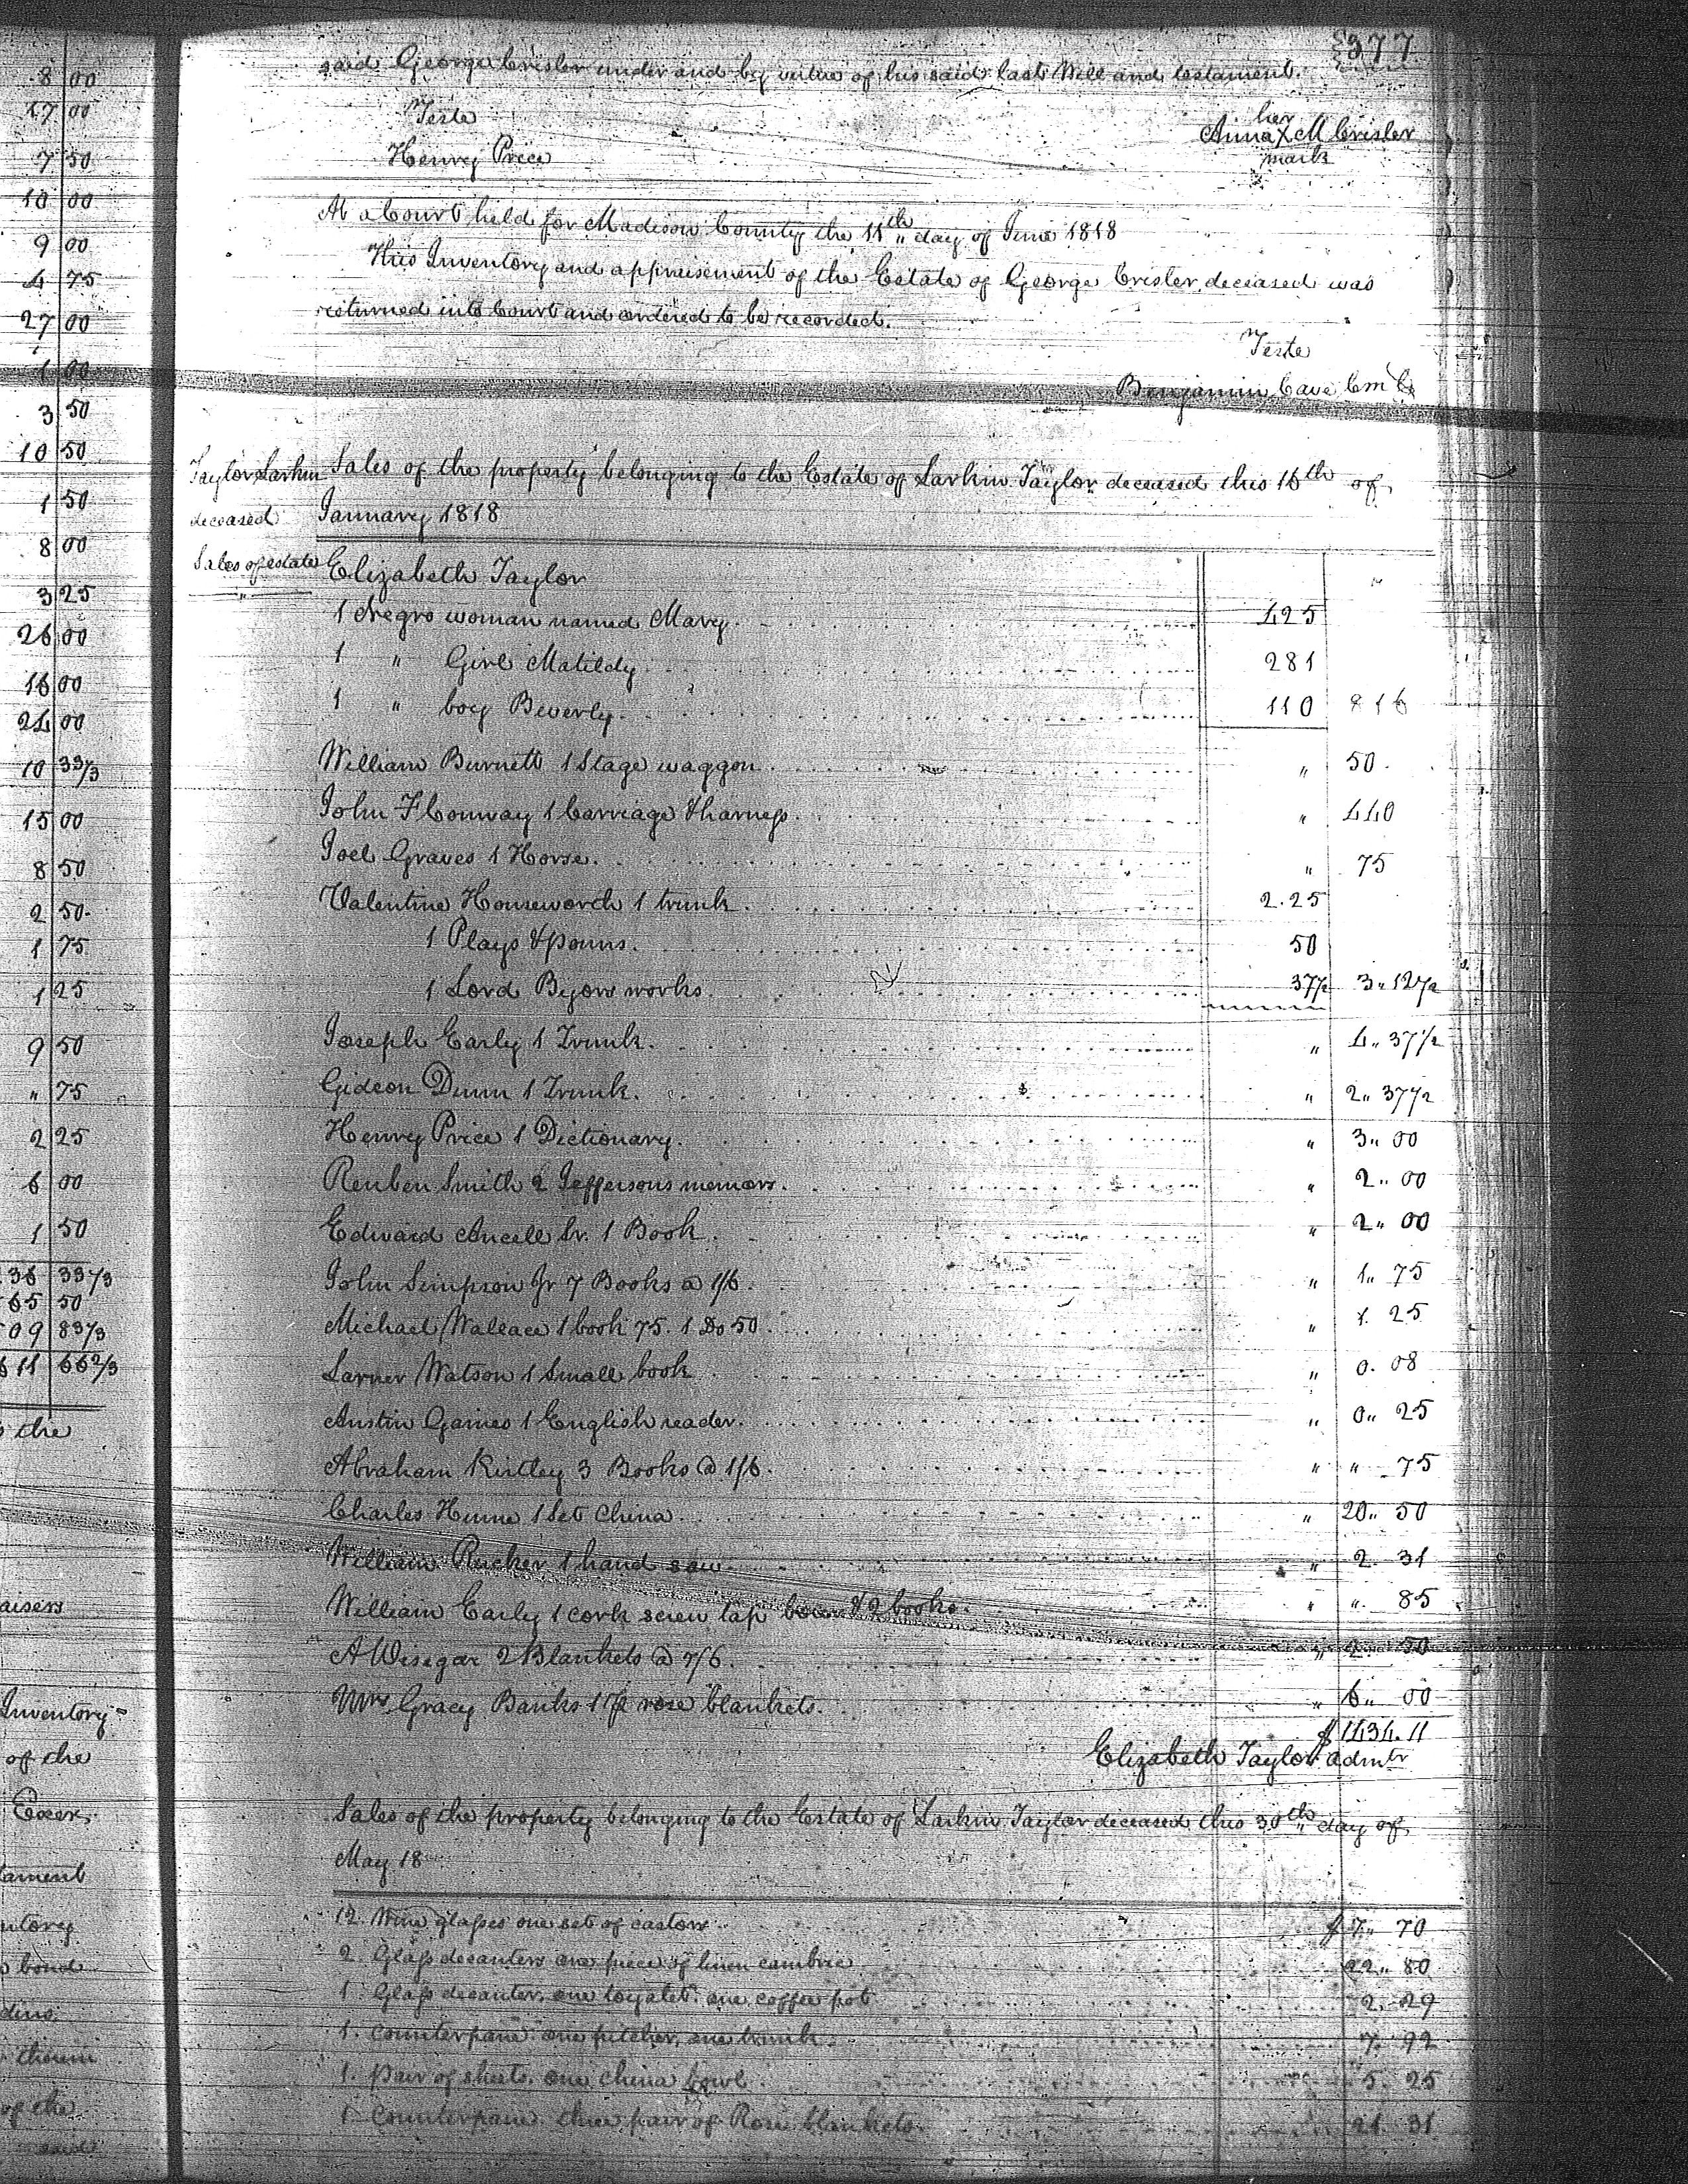 8 00
17 00
7 50
10 00
9 00
4 75
27 00
1 00
3 50
10 50
1 50
8 00
3 25
26 00
16 00
24 00
10 33/3
15 00
8 50
2 50
1 75
1 25
9 50
" 75
2 25
6 00
1 50
36 33/3
65 50
09 83/3
611 66 2/3
the
aisers
Inventory
of the
Exer,
tament
ntory
bond
ding
them
of the
said
377
said George Crisler under and by virtue of his said last Will and testament.
Teste
her
Anna X M Crisler
mark
Henry Price
At a Court held for Madison County the 11th day of June 1818
This Inventory and appraisement of the Estate of George Crisler deceased was
returned into Court and ordered to be recorded.
Teste
Benjamin Cave Cm Ck
Taylor Larkin
deceased
Sales of estate
Sales of the property belonging to the Estate of Larkin Taylor deceased this 16th of
January 1818
Elizabeth Taylor
1 Negro woman named Mary 425
1 " Girl Matildy 281
1 " boy Beverly 110 816
William Burnett 1 Stage waggon " 50
John F Conway 1 Carriage & harness " 440
Joel Graves 1 Horse " 75
Valentine Houseworth 1 trunk 2.25
1 Plays & poims 50
1 Lord Byons works 37 1/2 3" 12 1/2
Joseph Early 1 Trunk " 4" 37 1/2
Gideon Dunn 1 Trunk " 2" 37 1/2
Henry Price 1 Dictionary " 3" 00
Reuben Smith 2 Jeffersons memors " 2" 00
Edward Ancell Sr. 1 Book " 2" 00
John Simpson Jr 7 Books @ 1/6 " 1" 75
Michael Wallace 1 book 75. 1 Do 50 " 1. 25
Larner Watson 1 Small book " 0. 08
Austin Gaines 1 English reader " 0" 25
Abraham Kirtley 3 Books @ 1/6 " " 75
Charles Hume 1 Set China " 20" 50
William Rucker 1 hand saw " 2. 31
William Early 1 cork screw tap & 2 books " ". 85
A Wisegar 2 Blankets @ 7/6 " 2. 50
Mrs Gracy Banks 1 pr rose blankets " 6" 00
$1434.11
Elizabeth Taylor admtr
Sales of the property belonging to the Estate of Larkin Taylor deceased this 30th day of
May 18
12. Wine glasses one set of castors $7" 70
2. Glass decanters one piece of linen cambric 22" 80
1. Glass decanter, one coffee pot 2. 29
1. Counterpane one pitcher, one trunk 7. 92
1. Pair of sheets, one china bowl 5. 25
1 Counterpane three pair of Rose blankets 21. 31